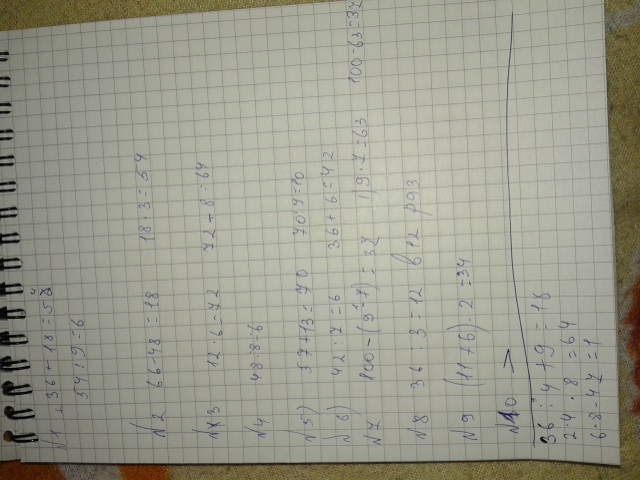 №1 36+18=54
54:9=6
№2 66-48=18 18·3=54
№3 12·6=72 72-8=64
№4 48:8=6
№5) 57+13=70 70:7=10
№6) 42:7=6 36+6=42
№7 100-(9·7)=37 1) 9·7=63 100-63=37
№8 36:3=12 в 12 раз
№9 (11+6)·2=34
№10 >
36:4+9=18
2·4·8=64
6·8-47=1